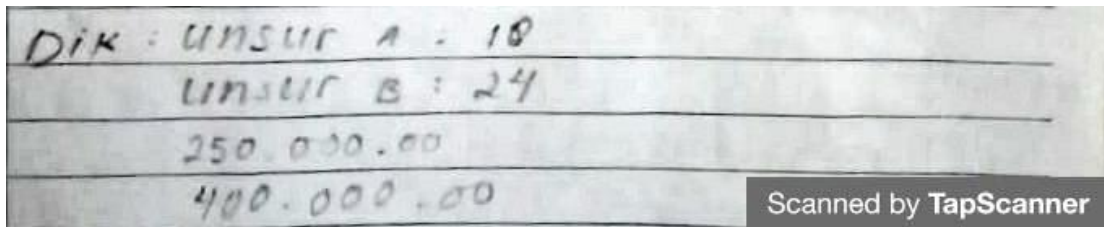 Dik : unsur A : 18
unsur B : 24
250.000.00
400.000.00
Scanned by TapScanner